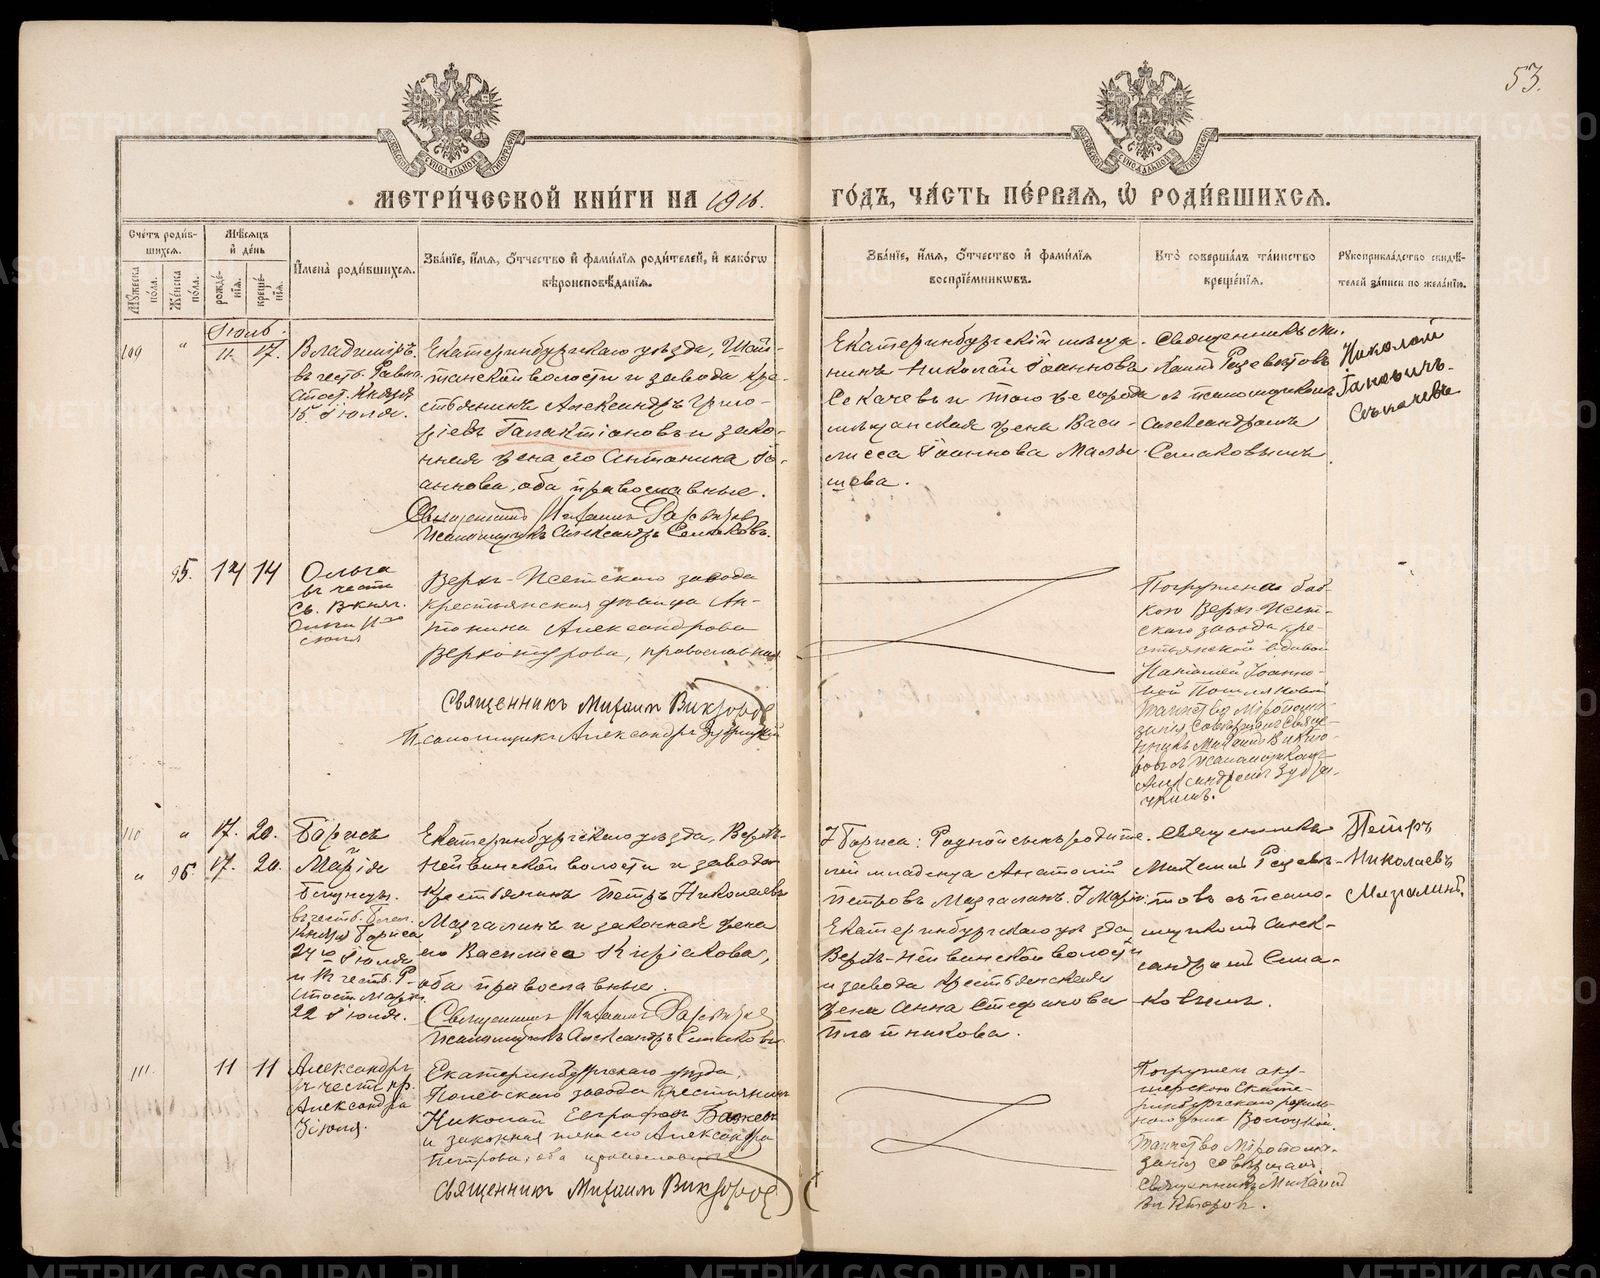 53.
МЕТРИЧЕСКОЙ КНИГИ НА 1916.
ГОДЪ, ЧАСТЬ ПЕРВАЯ, Ѽ РОДИВШИХСЯ.
Счетъ родив-
шихся.
Мѣсяцъ
и день
Мужеска
пола.
Женска
пола.
рожде-
нія.
креще-
нія.
Имена родившихся.
Званіе, имя, отчество и фамилія родителей, и какогω
вѣроисповѣданія.
Званіе, имя, отчество и фамилія
воспріемникωвъ.
Кто совершалъ таинство
крещенія.
Рукоприкладство свидѣ-
телей записи по желанію.
Іюль.
109 " 11. 17.
Владиміръ.
въ честь Равно
апост. Князя
15 Іюля.
Екатеринбургскаго уѣзда, Шай-
танской волости и завода кре-
стьянинъ Александръ Григо-
ріевъ Галактіоновъ и зако-
нная жена его Антонина Іо-
аннова, оба православные.
Священникъ Михаилъ
Псаломщикъ Александръ Семаковъ.
Екатеринбургскій мѣща-
нинъ Николай Іоанновъ
Секачевъ и того же города
мѣщанская жена Васи-
лисса Іоаннова Малы-
шева.
Священникъ Ми-
хаилъ
съ псаломщикомъ
Александромъ
Семаковымъ
Николай
Ивановичъ
Секачевъ
95. 14 14
Ольга
въ честь
Св. В. Княг.
Ольги 11го
іюля
Верхъ-Исетскаго завода
крестьянская дѣвица Ан-
тонина Александрова
Верхотурова, православная
Священникъ Михаилъ Викторовъ
Псаломщикъ Александръ
Погружена баб-
кою Верхъ-Исет-
скаго завода кре-
стьянской вдовой
Іоанно-
вой
Таинство Мѵропома-
занія совершилъ Свяще-
нникъ Михаилъ Викто-
ровъ съ псаломщикомъ
Александромъ
110 " 17. 20.
Борисъ
" 96. 17. 20.
и
Марія
Близнецы.
въ честь Благ.
Князя Бориса
24го Іюля
и въ честь Р-
апост. Маріи
22 Іюля.
Екатеринбургскаго уѣзда, Верхъ-
Нейвинской волости и завода
крестьянинъ Петръ Николаевъ
Мазгалинъ и законная жена
его Василиса Киріакова,
оба православные.
Священникъ Михаилъ
Псаломщикъ Александръ Семаковъ
У Бориса: Родной сынъ родите-
лей младенца Анатолій
Петровъ Мазгалинъ. У Маріи:
Екатеринбургскаго уѣзда
Верхъ-Нейвинской волости
и завода крестьянская
жена Анна Стефанова
Плотникова.
Священникъ
Михаилъ
съ псало-
мщикомъ Алек-
сандромъ Сема-
ковымъ.
Петръ
Николаевъ
Мазгалинъ.
111. 11 11
Александръ
въ честь пр.
Александра
Іюля.
Екатеринбургскаго уѣзда,
Полевскаго завода крестьянинъ
Николай Евграфовъ Бажевъ
и законная жена его Александра
Петрова, оба православные
Священникъ Михаилъ Викторовъ
Погруженъ аку-
шеркою Екате-
ринбургскаго родиль-
наго дома
Таинство Мѵропома-
занія совершалъ
Священникъ Михаилъ
Викторовъ.
METRIKI.GASO-URAL.RU